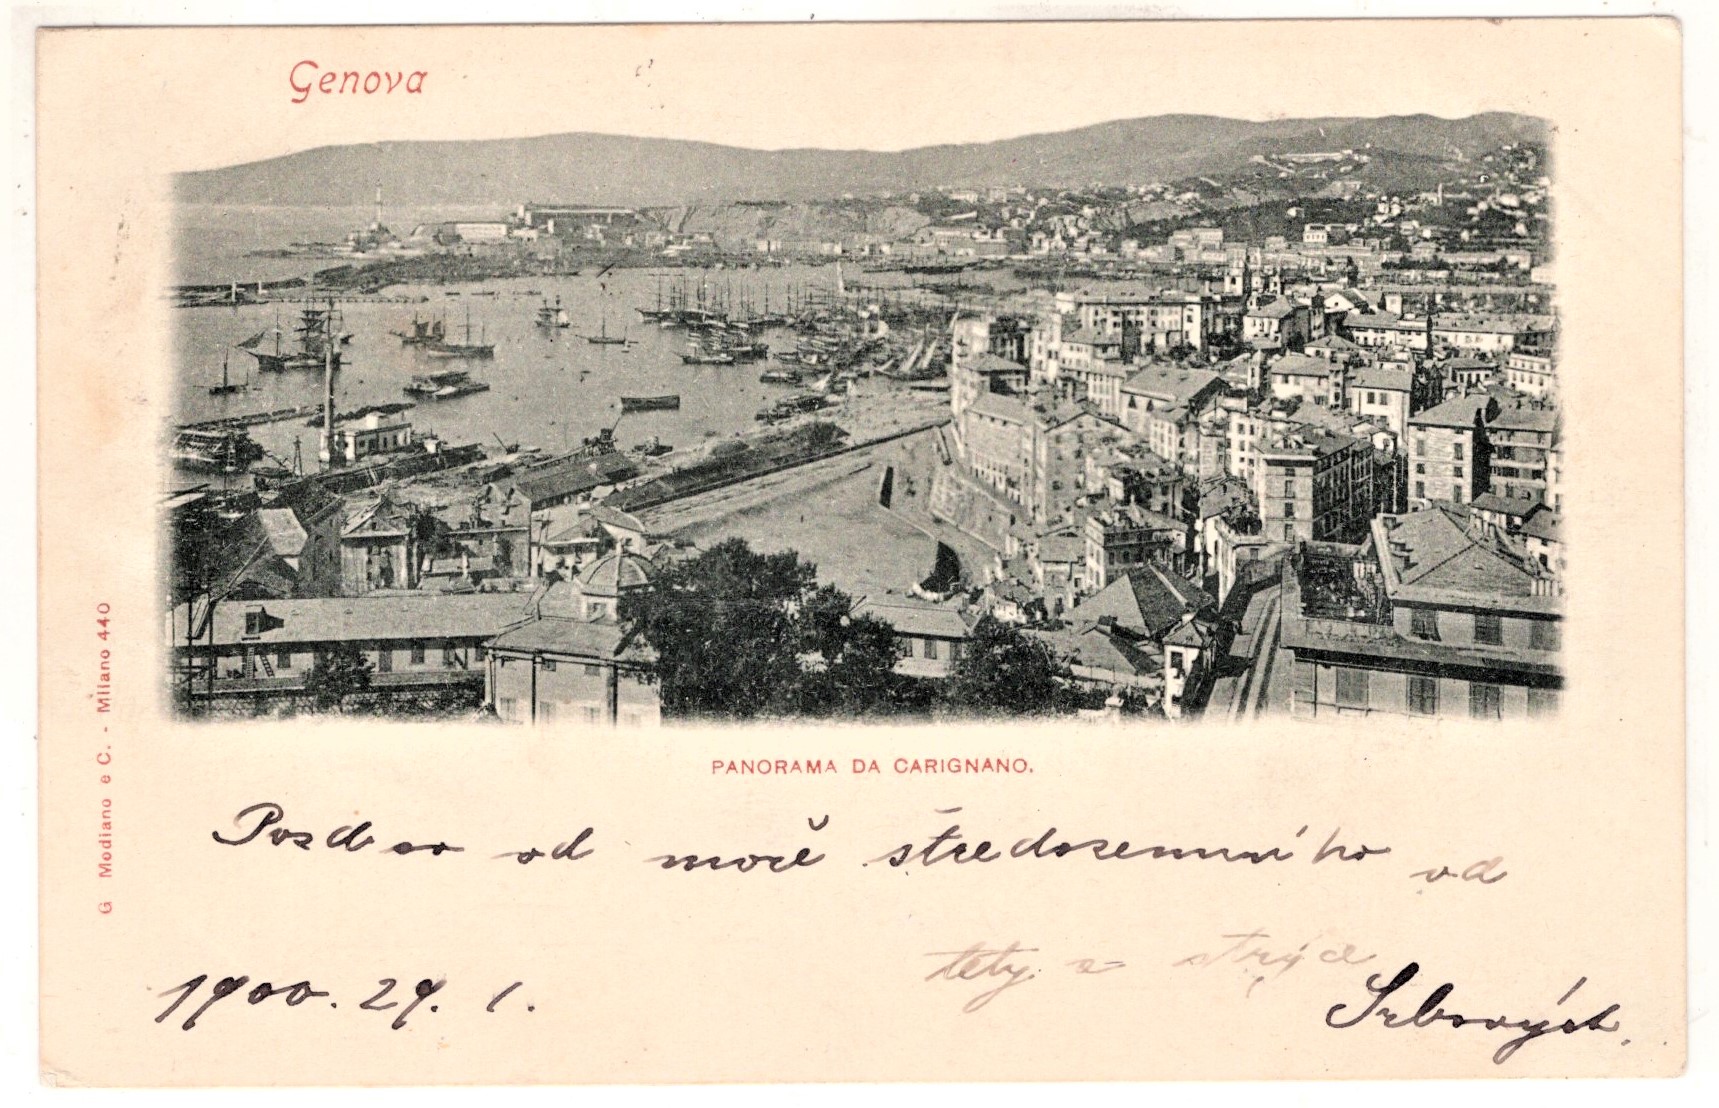 Genova
G. Modiano e C. - Milano 440
PANORAMA DA CARIGNANO.
Pozdrav od moře středozemního od
tety a strýce
Srbových.
1900. 29. 1.